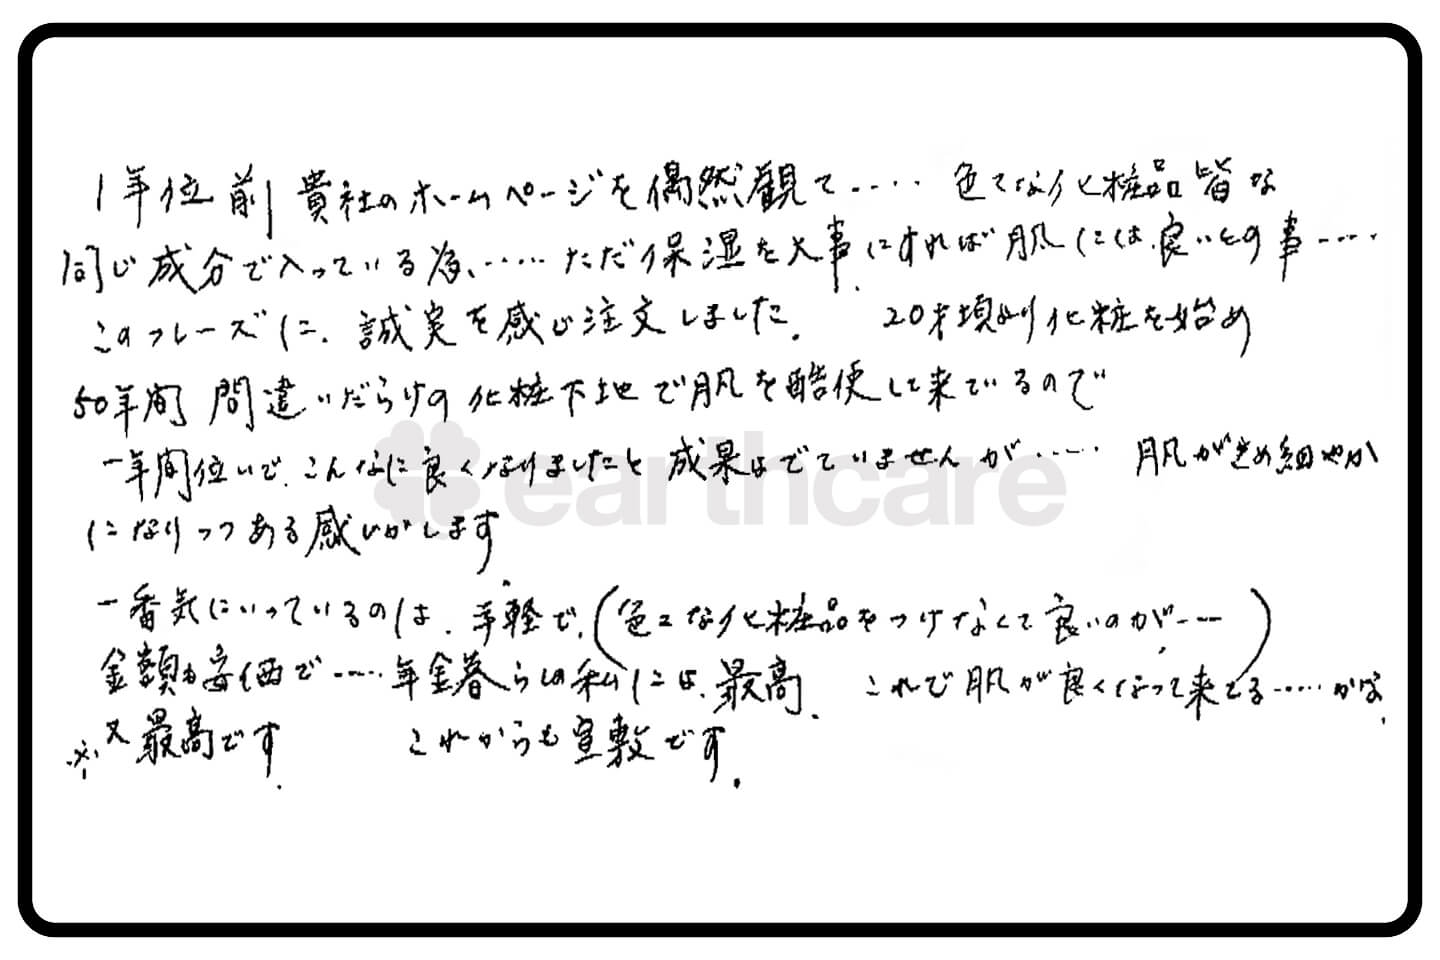 1年位前 貴社のホームページを偶然観て‥‥ 色々な化粧品皆な
同じ成分で入っている為、‥‥‥ただ保湿を大事にすれば肌には良いとの事‥‥‥
このフレーズに、誠実を感じ注文しました。 20才頃より化粧を始め
50年間 間違いだらけの化粧下地で肌を酷使して来ているので
一年間位いで、こんなに良くなりましたと成果はでていませんが‥‥‥ 肌がきめ細やか
earthcare
になりつつある感じがします
一番気にいっているのは、手軽で、(色々な化粧品をつけなくて良いのが‥‥)
金額も安価で‥‥‥年金暮らしの私には、最高、 これで肌が良くなって来てる‥‥‥かな
※又最高です。 これからも宜敷です。